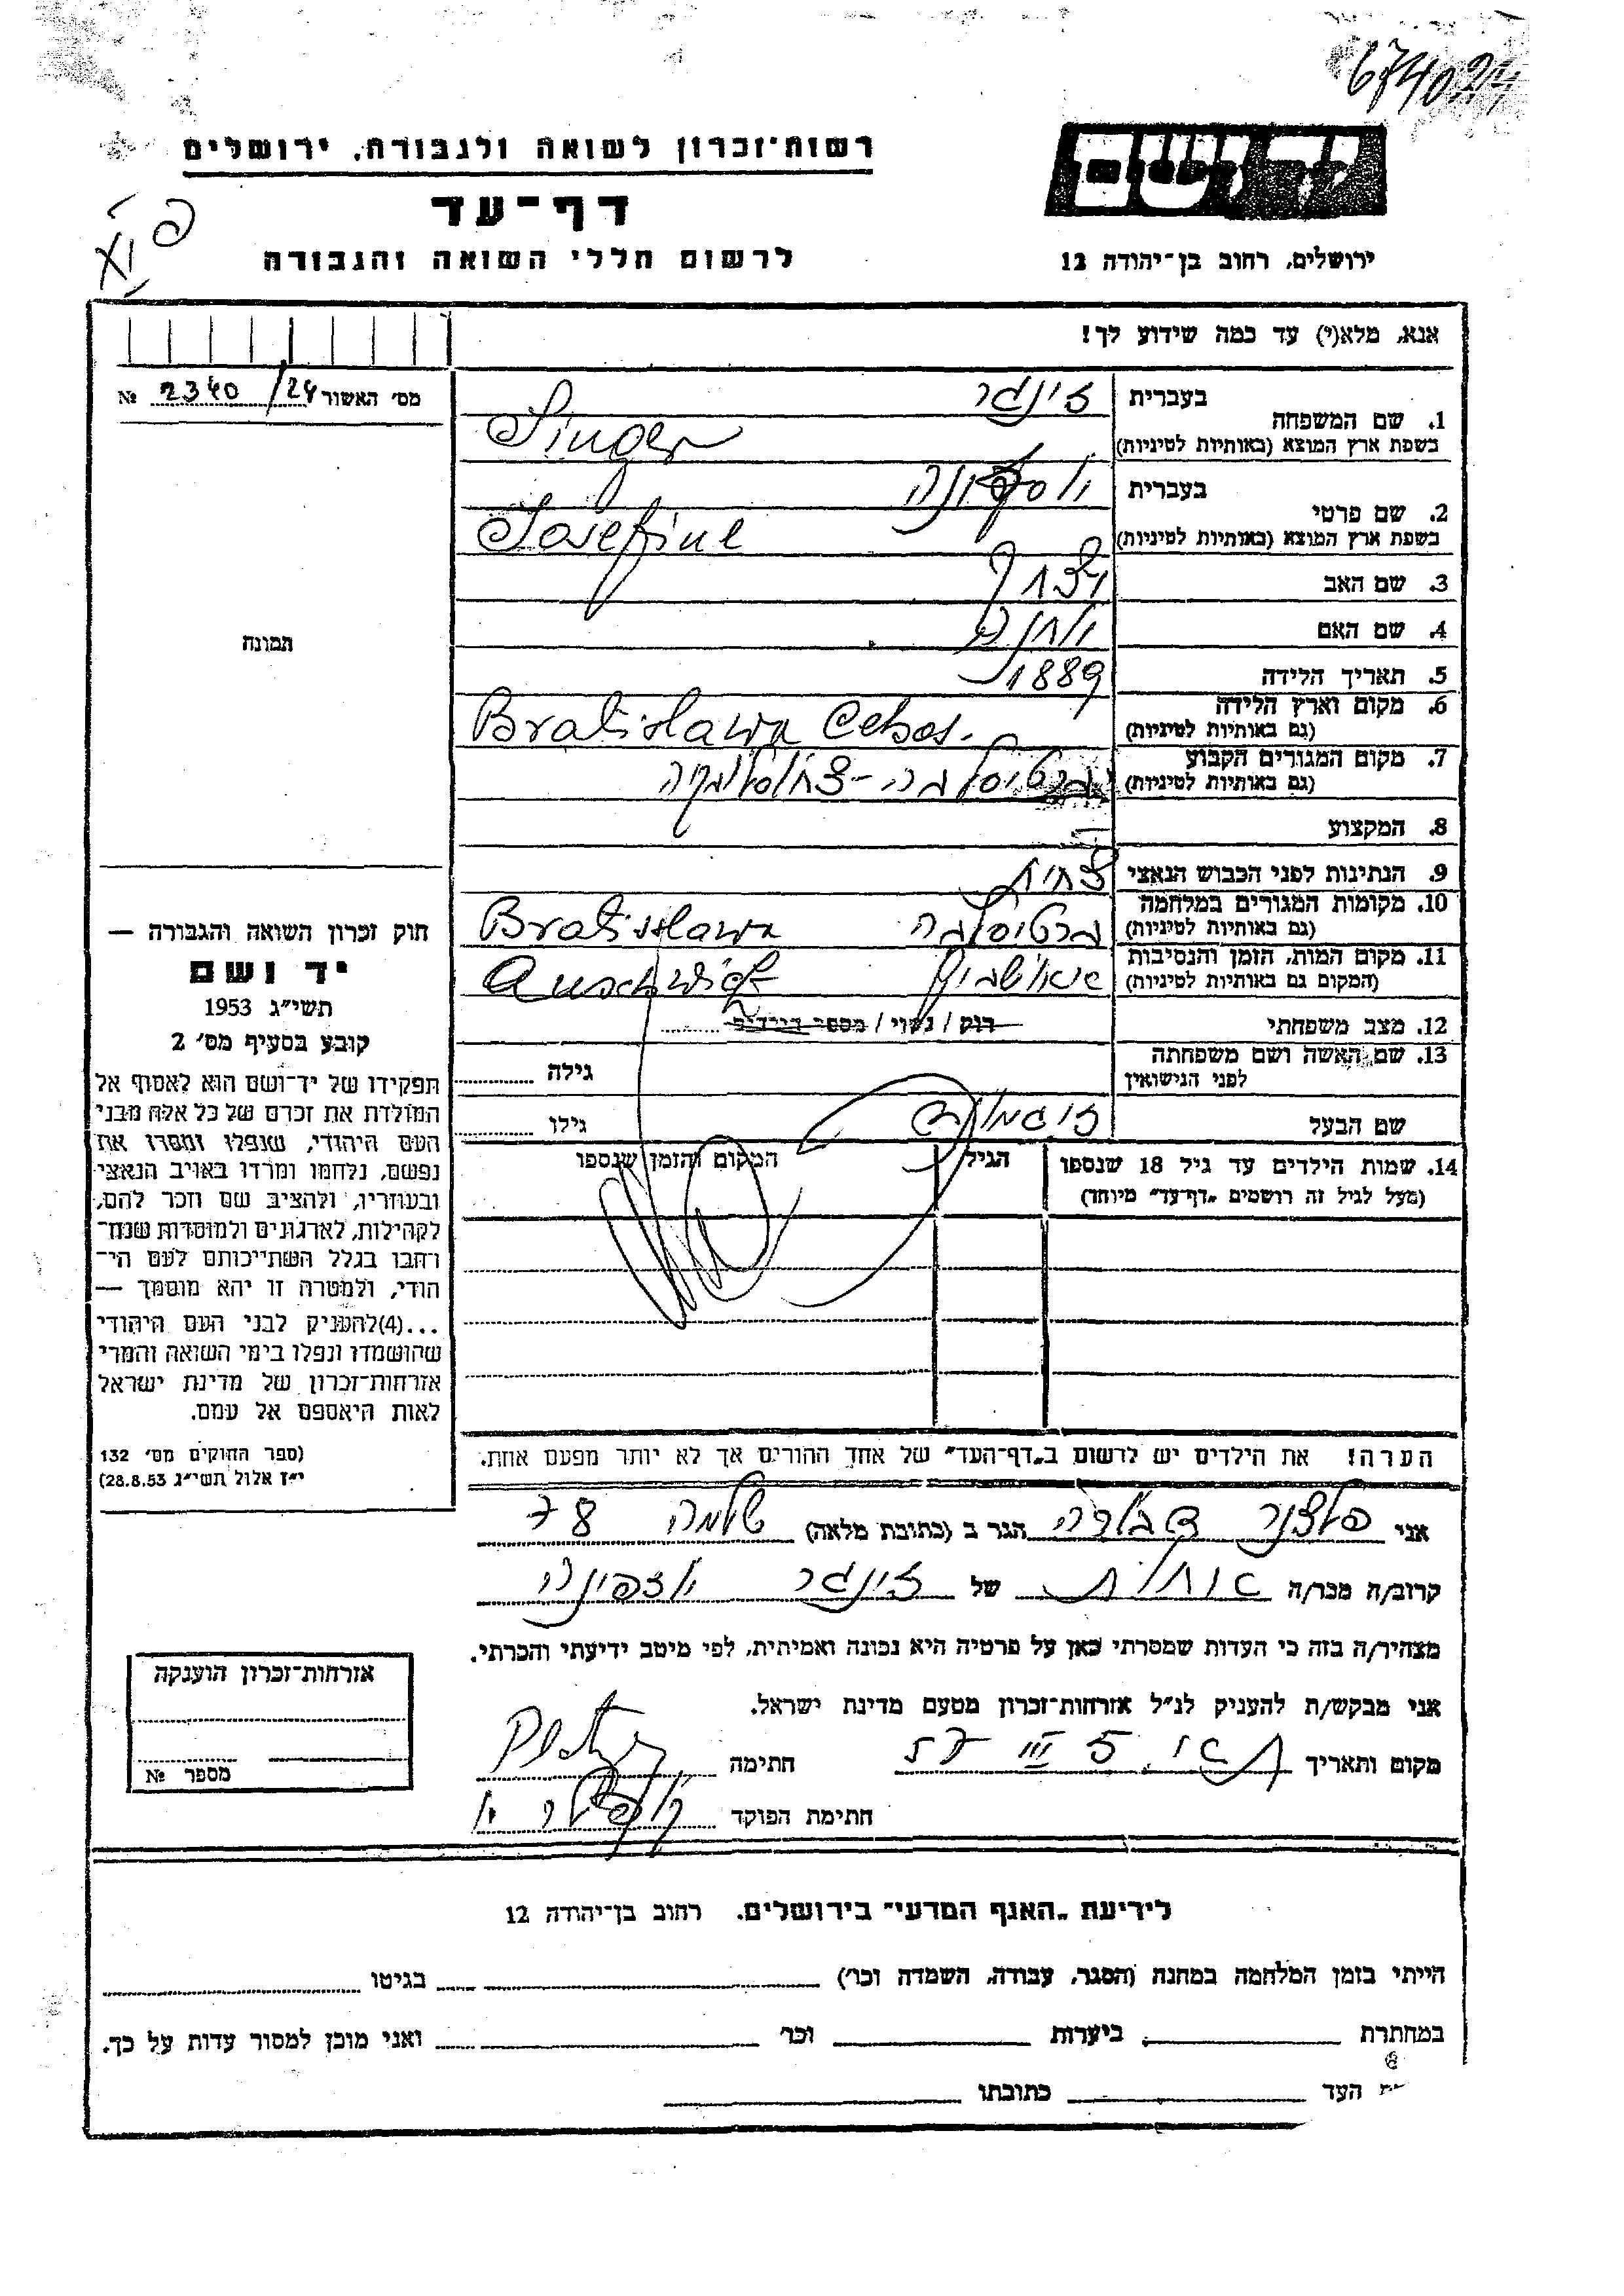 רשות־זכרון לשואה ולגבורה, ירושלים
דף־עד
לרשום חללי השואה והגבורה
יד ושם
ירושלים, רחוב בן־יהודה 12
אנא, מלא(י) עד כמה שידוע לך!
מס׳ האשור 2340/24 №
תמונה
1. שם המשפחה
בעברית זינגר
בשפת ארץ המוצא (באותיות לטיניות) Singer
2. שם פרטי
בעברית
בשפת ארץ המוצא (באותיות לטיניות) Josefine
3. שם האב
4. שם האם
5. תאריך הלידה 1889
6. מקום וארץ הלידה
(גם באותיות לטיניות) Bratislawa
7. מקום המגורים הקבוע
(גם באותיות לטיניות) ברטיסלבה
8. המקצוע
9. הנתינות לפני הכבוש הנאצי
10. מקומות המגורים במלחמה
(גם באותיות לטיניות) ברטיסלבה Bratislawa
11. מקום המות, הזמן והנסיבות
(המקום גם באותיות לטיניות) אאושביץ Auschwitz
12. מצב משפחתי רוק / נשוי / מספר הילדים
13. שם האשה ושם משפחתה
לפני הנישואין גילה
שם הבעל זיגמונד גילו
14. שמות הילדים עד גיל 18 שנספו הגיל המקום והזמן שנספו
(מעל לגיל זה רושמים „דף־עד” מיוחד)
הערה! את הילדים יש לרשום ב„דף־העד” של אחד ההורים אך לא יותר מפעם אחת.
חוק זכרון השואה והגבורה —
יד ושם
תשי״ג 1953
קובע בסעיף מס׳ 2
תפקידו של יד־ושם הוא לאסוף אל
המולדת את זכרם של כל אלה מבני
העם היהודי, שנפלו ומסרו את
נפשם, נלחמו ומרדו באויב הנאצי
ובעוזריו, ולהציב שם וזכר להם,
לקהילות, לארגונים ולמוסדות שנח־
רחבו בגלל השתייכותם לעם הי־
הודי, ולמטרה זו יהא מוסמך —
...(4)להעניק לבני העם היהודי
שהושמדו ונפלו בימי השואה והמרי
אזרחות־זכרון של מדינת ישראל
לאות היאספם אל עמם.
(ספר החוקים מס׳ 132
י״ז אלול תשי״ג 28.8.53)
אני הגר ב (כתובת מלאה) שלמה 78
קרוב/ה מכר/ה אחות של זינגר יוזפינה
מצהיר/ה בזה כי העדות שמסרתי כאן על פרטיה היא נכונה ואמיתית, לפי מיטב ידיעתי והכרתי.
אני מבקש/ת להעניק לנ״ל אזרחות־זכרון מטעם מדינת ישראל.
מקום ותאריך חתימה
חתימת הפוקד
אזרחות־זכרון הוענקה
מספר №
לידיעת „האגף המדעי” בירושלים, רחוב בן־יהודה 12
הייתי בזמן המלחמה במחנה (הסגר, עבודה, השמדה וכו׳) בגיטו
במחתרת ביערות וכו׳ ואני מוכן למסור עדות על כך.
העד כתובתו